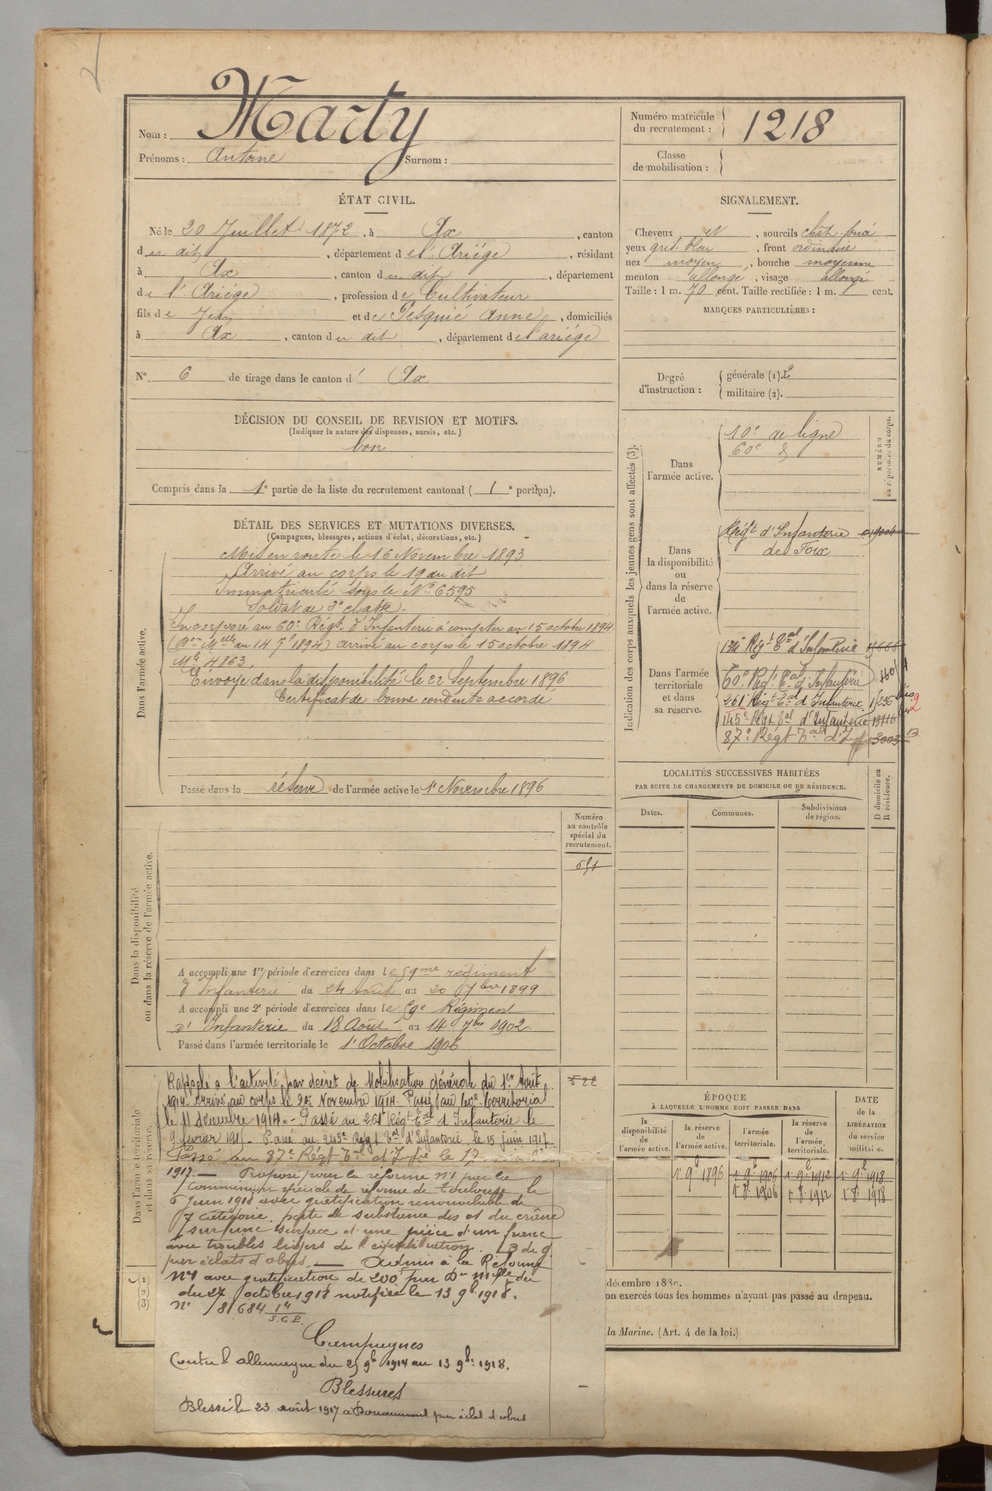 Nom : Marty
Prénoms : Antoine Surnom :
Numéro matricule du recrutement : 1218
Classe de mobilisation :
ÉTAT CIVIL.
Né le 20 Juillet 1872, à Ax, canton
d en dit, département de l'Ariége, résidant
à Ax, canton d en dit, département
de l'Ariége, profession de Cultivateur
fils de Jean et de Pesquié Anne, domiciliés
à Ax, canton d en dit, département de l'ariége
N° 6 de tirage dans le canton d' Ax
SIGNALEMENT.
Cheveux et, sourcils chât. foncé
yeux gris bleu, front ordinaire
nez moyen, bouche moyenne
menton allongé, visage allongé
Taille : 1 m. 70 cent. Taille rectifiée : 1 m. cent.
MARQUES PARTICULIÈRES :
Degré d'instruction :
générale (1) 2
militaire (2).
DÉCISION DU CONSEIL DE REVISION ET MOTIFS.
(Indiquer la nature des dispenses, sursis, etc.)
bon
Compris dans la 1e partie de la liste du recrutement cantonal ( 1e portion).
DÉTAIL DES SERVICES ET MUTATIONS DIVERSES.
(Campagnes, blessures, actions d'éclat, décorations, etc.)
Dans l'armée active.
Mis en route le 16 Novembre 1893
Arrivé au corps le 19 du dit
Immatriculé sous le N° 6595
Soldat de 2e classe.
Incorporé au 60e Régt d'Infanterie à compter du 15 octobre 1894
(Don Melle du 14 7e 1894) arrivé au corps le 15 octobre 1894
Mle 4863.
Envoyé dans la disponibilité le 22 Septembre 1896
Certificat de bonne conduite accordé
Passé dans la réserve de l'armée active le 1er Novembre 1896
Indication des corps auxquels les jeunes gens sont affectés (3).
NUMÉRO
Dans l'armée active.
10e de ligne
60e d°
Dans la disponibilité ou dans la réserve de l'armée active.
Régt d'Infanterie
de Foix
Dans l'armée territoriale et dans sa réserve.
134e Régt Eal d'Infanterie
60e Régt Eal d'Infanterie
261e Régt Eal d'Infanterie 1256
145e Régt Eal d'Infanterie
87e Régt Eal d'Inf 3003
LOCALITÉS SUCCESSIVES HABITÉES
PAR SUITE DE CHANGEMENTS DE DOMICILE OU DE RÉSIDENCE.
Dates.
Communes.
Subdivisions de région.
D domicile ou R résidence.
Numéro au contrôle spécial du recrutement.
651
Dans la disponibilité ou dans la réserve de l'armée active.
A accompli une 1re période d'exercices dans le 59me régiment
d'Infanterie du 24 Août au 20 7bre 1899
A accompli une 2e période d'exercices dans le 59e Régiment
d'Infanterie du 18 Août au 14 7bre 1902.
Passé dans l'armée territoriale le 1er Octobre 1906
Dans l'armée territoriale et dans sa réserve.
522
Rappelé à l'activité par décret de Mobilisation Générale du 1er Août
1914. Arrivé au corps le 25 Novembre 1914. Passé au
le 11 Décembre 1914. Passé au 261e Régt Eal d'Infanterie le
9 février 191 . Passé au 145e Régt Eal d'Infanterie le 15 juin 191
Passé au 87e Régt Eal d'Infie le 17
1917. — Proposé pour la réforme n°1 par la
Commission spéciale de réforme de Toulouse le
6 Juin 1918 avec gratification renouvelable de
7e catégorie. perte de substance des os du crâne
sur une surface d'une pièce d'un franc
avec troubles légers de l'équilibration
par éclats d'obus. — Admis à la Réforme
N°1 avec gratification de 200f par Don Mlle du
du 27 octobre 1918 notifiée le 13 9b 1918.
N° 81684
Campagnes
Contre l'allemagne du 25 9b 1914 au 13 9b 1918.
Blessures
Blessé le 23 août 1917 à Douaumont par éclat d'obus
ÉPOQUE
À LAQUELLE L'HOMME DOIT PASSER DANS
la disponibilité de l'armée active.
la réserve de l'armée active.
l'armée territoriale.
la réserve de l'armée territoriale.
DATE de la LIBÉRATION du service militaire.
1er 9b 1896
1 9b 1906
1 9b 1912
1 9b 1918
1 8b 1906
1 8b 1912
1 8b 1918
décembre 1880.
on exercés tous les hommes n'ayant pas passé au drapeau.
la Marine. (Art. 4 de la loi.)